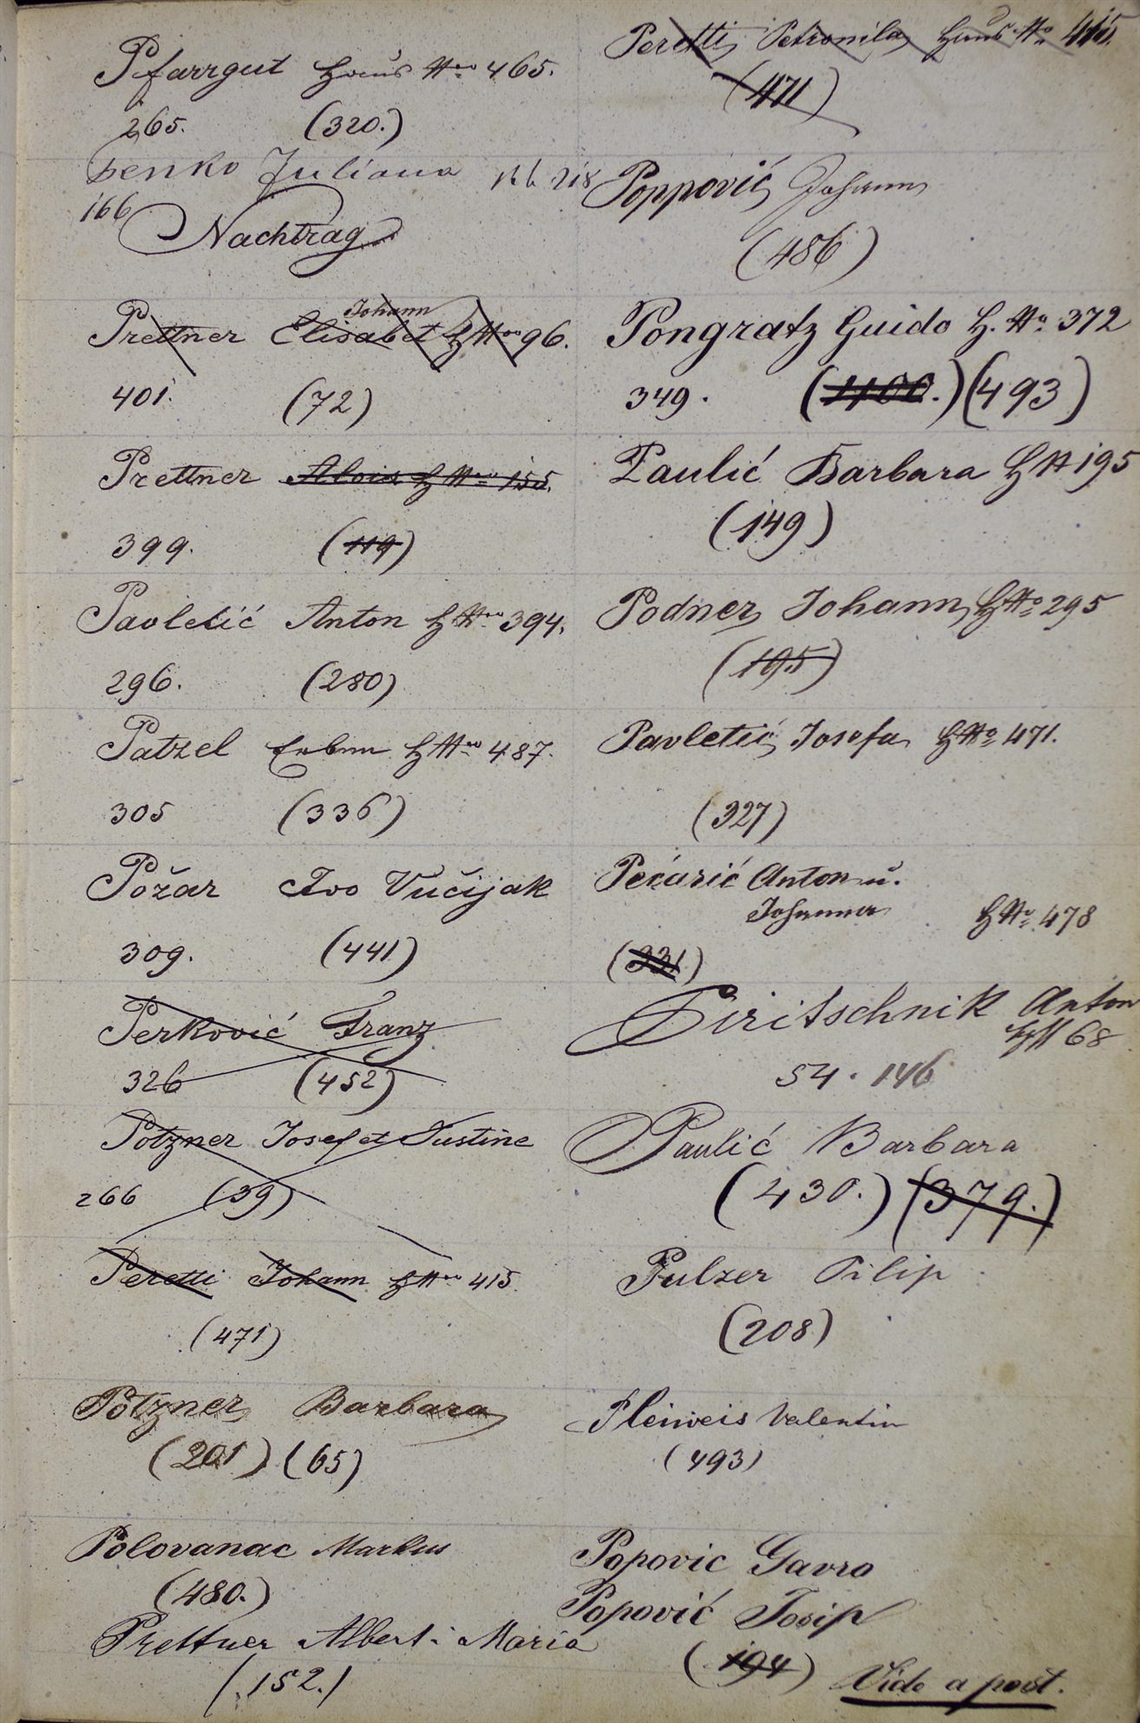 Pfarrgut Haus Nro 465.
265. (320.)
Senko Juliana 166 218
166
Nachtrag
Johann
Prettner Elisabet HNro 96.
401. (72)
Prettner Alois HNro 155.
399. (119)
Pavletić Anton HNro 394.
296. (280)
Patzel Erben HNro 487.
305 (336)
Požar Ivo Vučijak
309. (441)
Perković Franz
326 (452)
Potzner Josef et Justine
266 (39)
Peretti Johann HNro 415.
(471)
Potzner Barbara
(201) (65)
Polovanac Markus
(480.)
Prettner Albert i Maria
(152.)
Peretti Petronila Haus No 415.
(471)
Poppović Johann
(486)
Pongratz Guido H. No 372
349. (1100.) (493)
Paulić Barbara HN 195
(149)
Podner Johann HNo 295
(195)
Pavletić Josefa HNo 471.
(327)
Pećarić Anton u.
Johanna HNo 478
(331)
Piritschnik Anton
68
54. 146
Paulić Barbara
(430.) (379.)
Pulzer Filip
(208)
Pleiweis Valentin
(493)
Popovic Gavro
Popović Josip
(194) Vide a post.